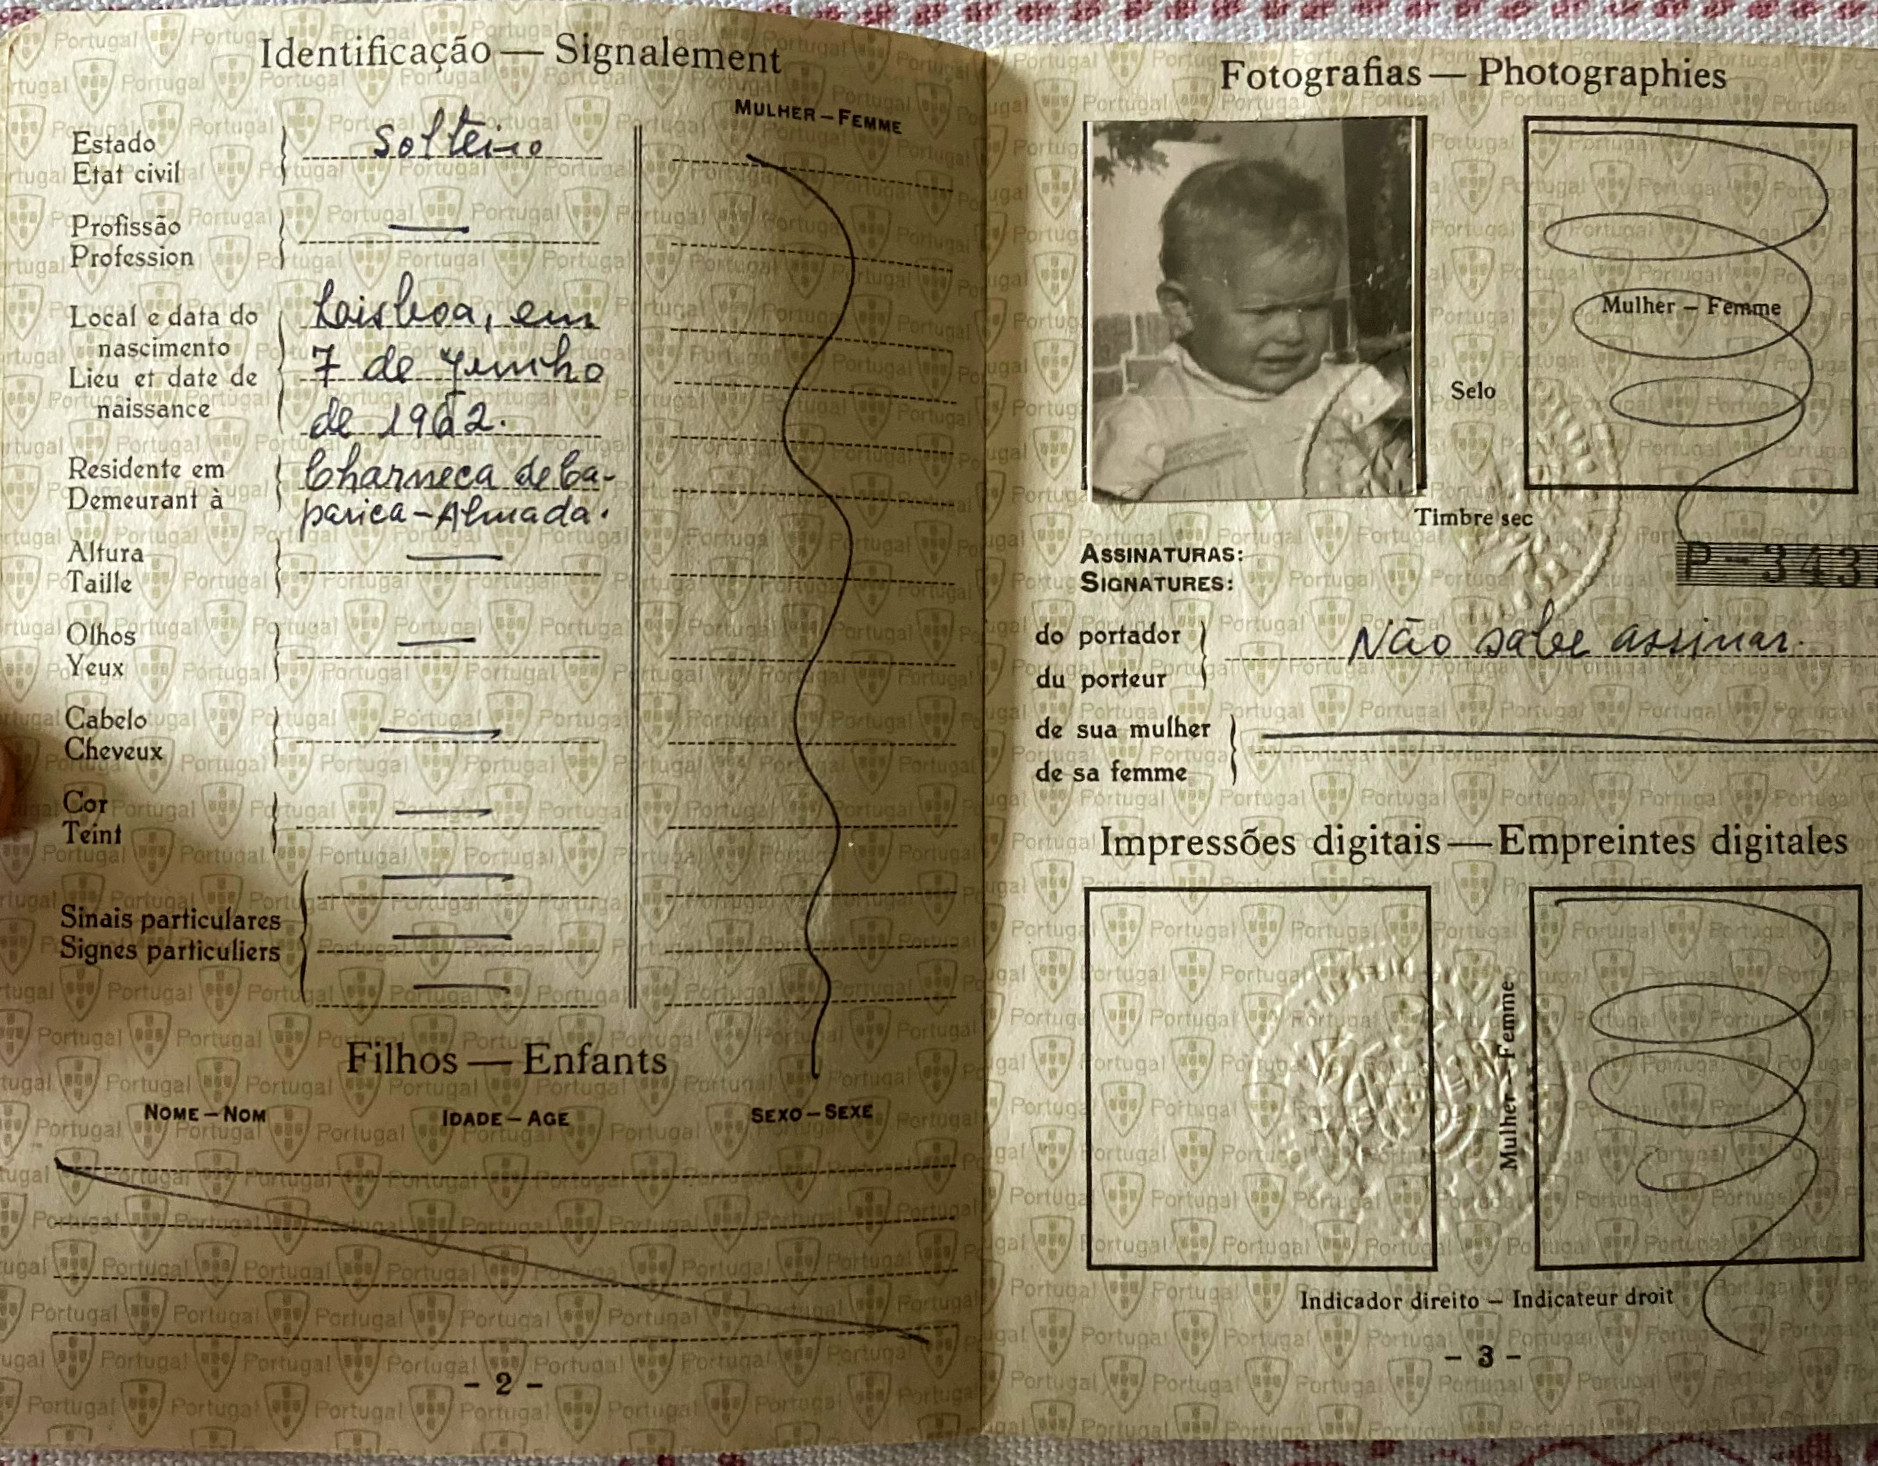 Identificação — Signalement
MULHER – FEMME
Estado
Etat civil
solteiro
Profissão
Profession
Local e data do
nascimento
Lieu et date de
naissance
Loisboa, em
7 de Junho
de 1962.
Residente em
Demeurant à
Charneca de Ca-
parica - Almada.
Altura
Taille
Olhos
Yeux
Cabelo
Cheveux
Cor
Teint
Sinais particulares
Signes particuliers
Filhos — Enfants
NOME – NOM IDADE – AGE SEXO – SEXE
- 2 -
Fotografias — Photographies
Mulher – Femme
Selo
Timbre sec
P-343
ASSINATURAS:
SIGNATURES:
do portador
du porteur
Não sabe assinar.
de sua mulher
de sa femme
Impressões digitais — Empreintes digitales
Mulher – Femme
Indicador direito – Indicateur droit
- 3 -